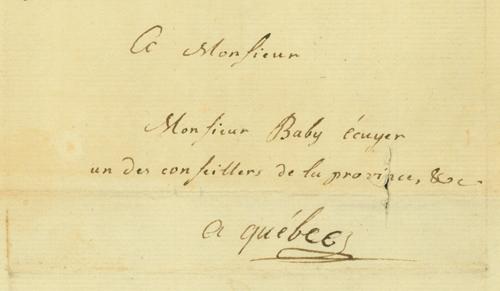 A Monsieur
Monsieur Baby écuyer
un des conseillers de la province, &c
a québec